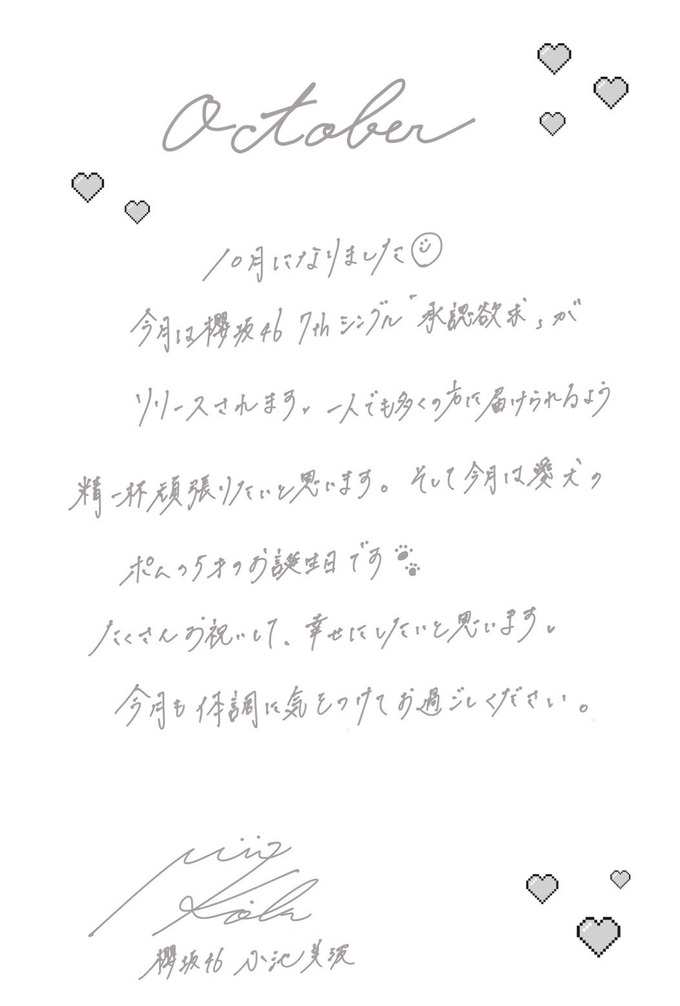 October
10月になりました
今月は櫻坂46 7thシングル「承認欲求」が
リリースされます。一人でも多くの方に届けられるよう
精一杯頑張りたいと思います。そして今月は愛犬の
ポムの5才のお誕生日です
たくさんお祝いして、幸せにしたいと思います。
今月も体調に気をつけてお過ごしください。
櫻坂46 小池美波